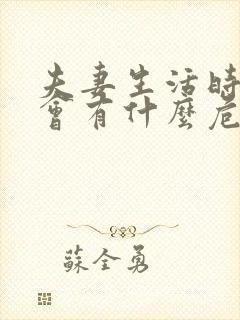 夫妻生活時
會有什麼危
蘇全勇